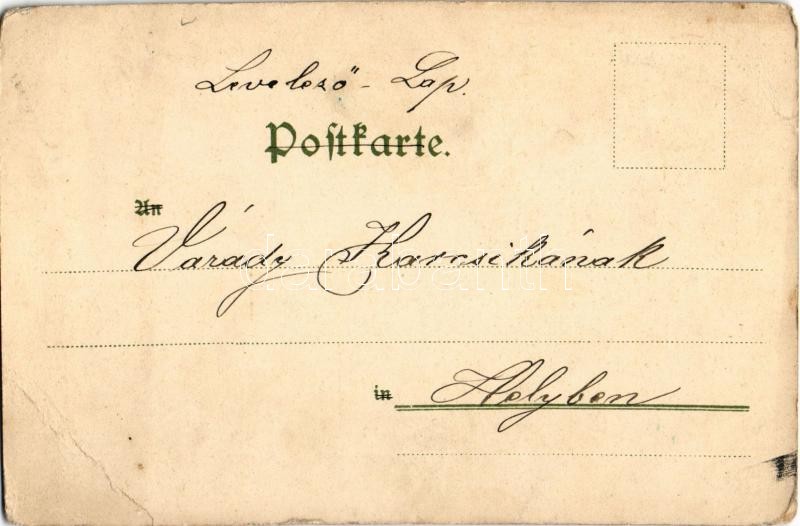 Levelező - Lap.
Postkarte.
An
Várady Karcsikának
in Helyben